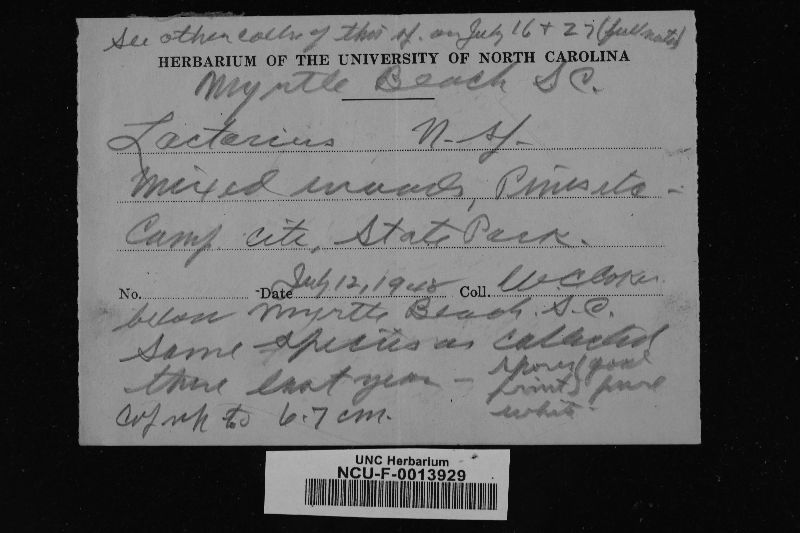 See other colls. of this sp. on July 16 + 27 (full notes)
HERBARIUM OF THE UNIVERSITY OF NORTH CAROLINA
Myrtle Beach S C.
Lactarius N. sp.
Mixed woods, Pines etc -
Camp cite, State Park.
No. Date July 12, 1948 Coll. W C Coker
below Myrtle Beach, S.C.
Same species as collected
there last year - spores (good
print) pure
white.
Cap up to 6.7 cm.
UNC Herbarium
NCU-F-0013929